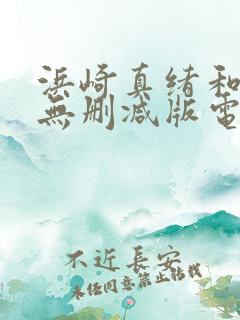 浜崎真绪和
無删减版電
不近長安
未任同意禁止转载